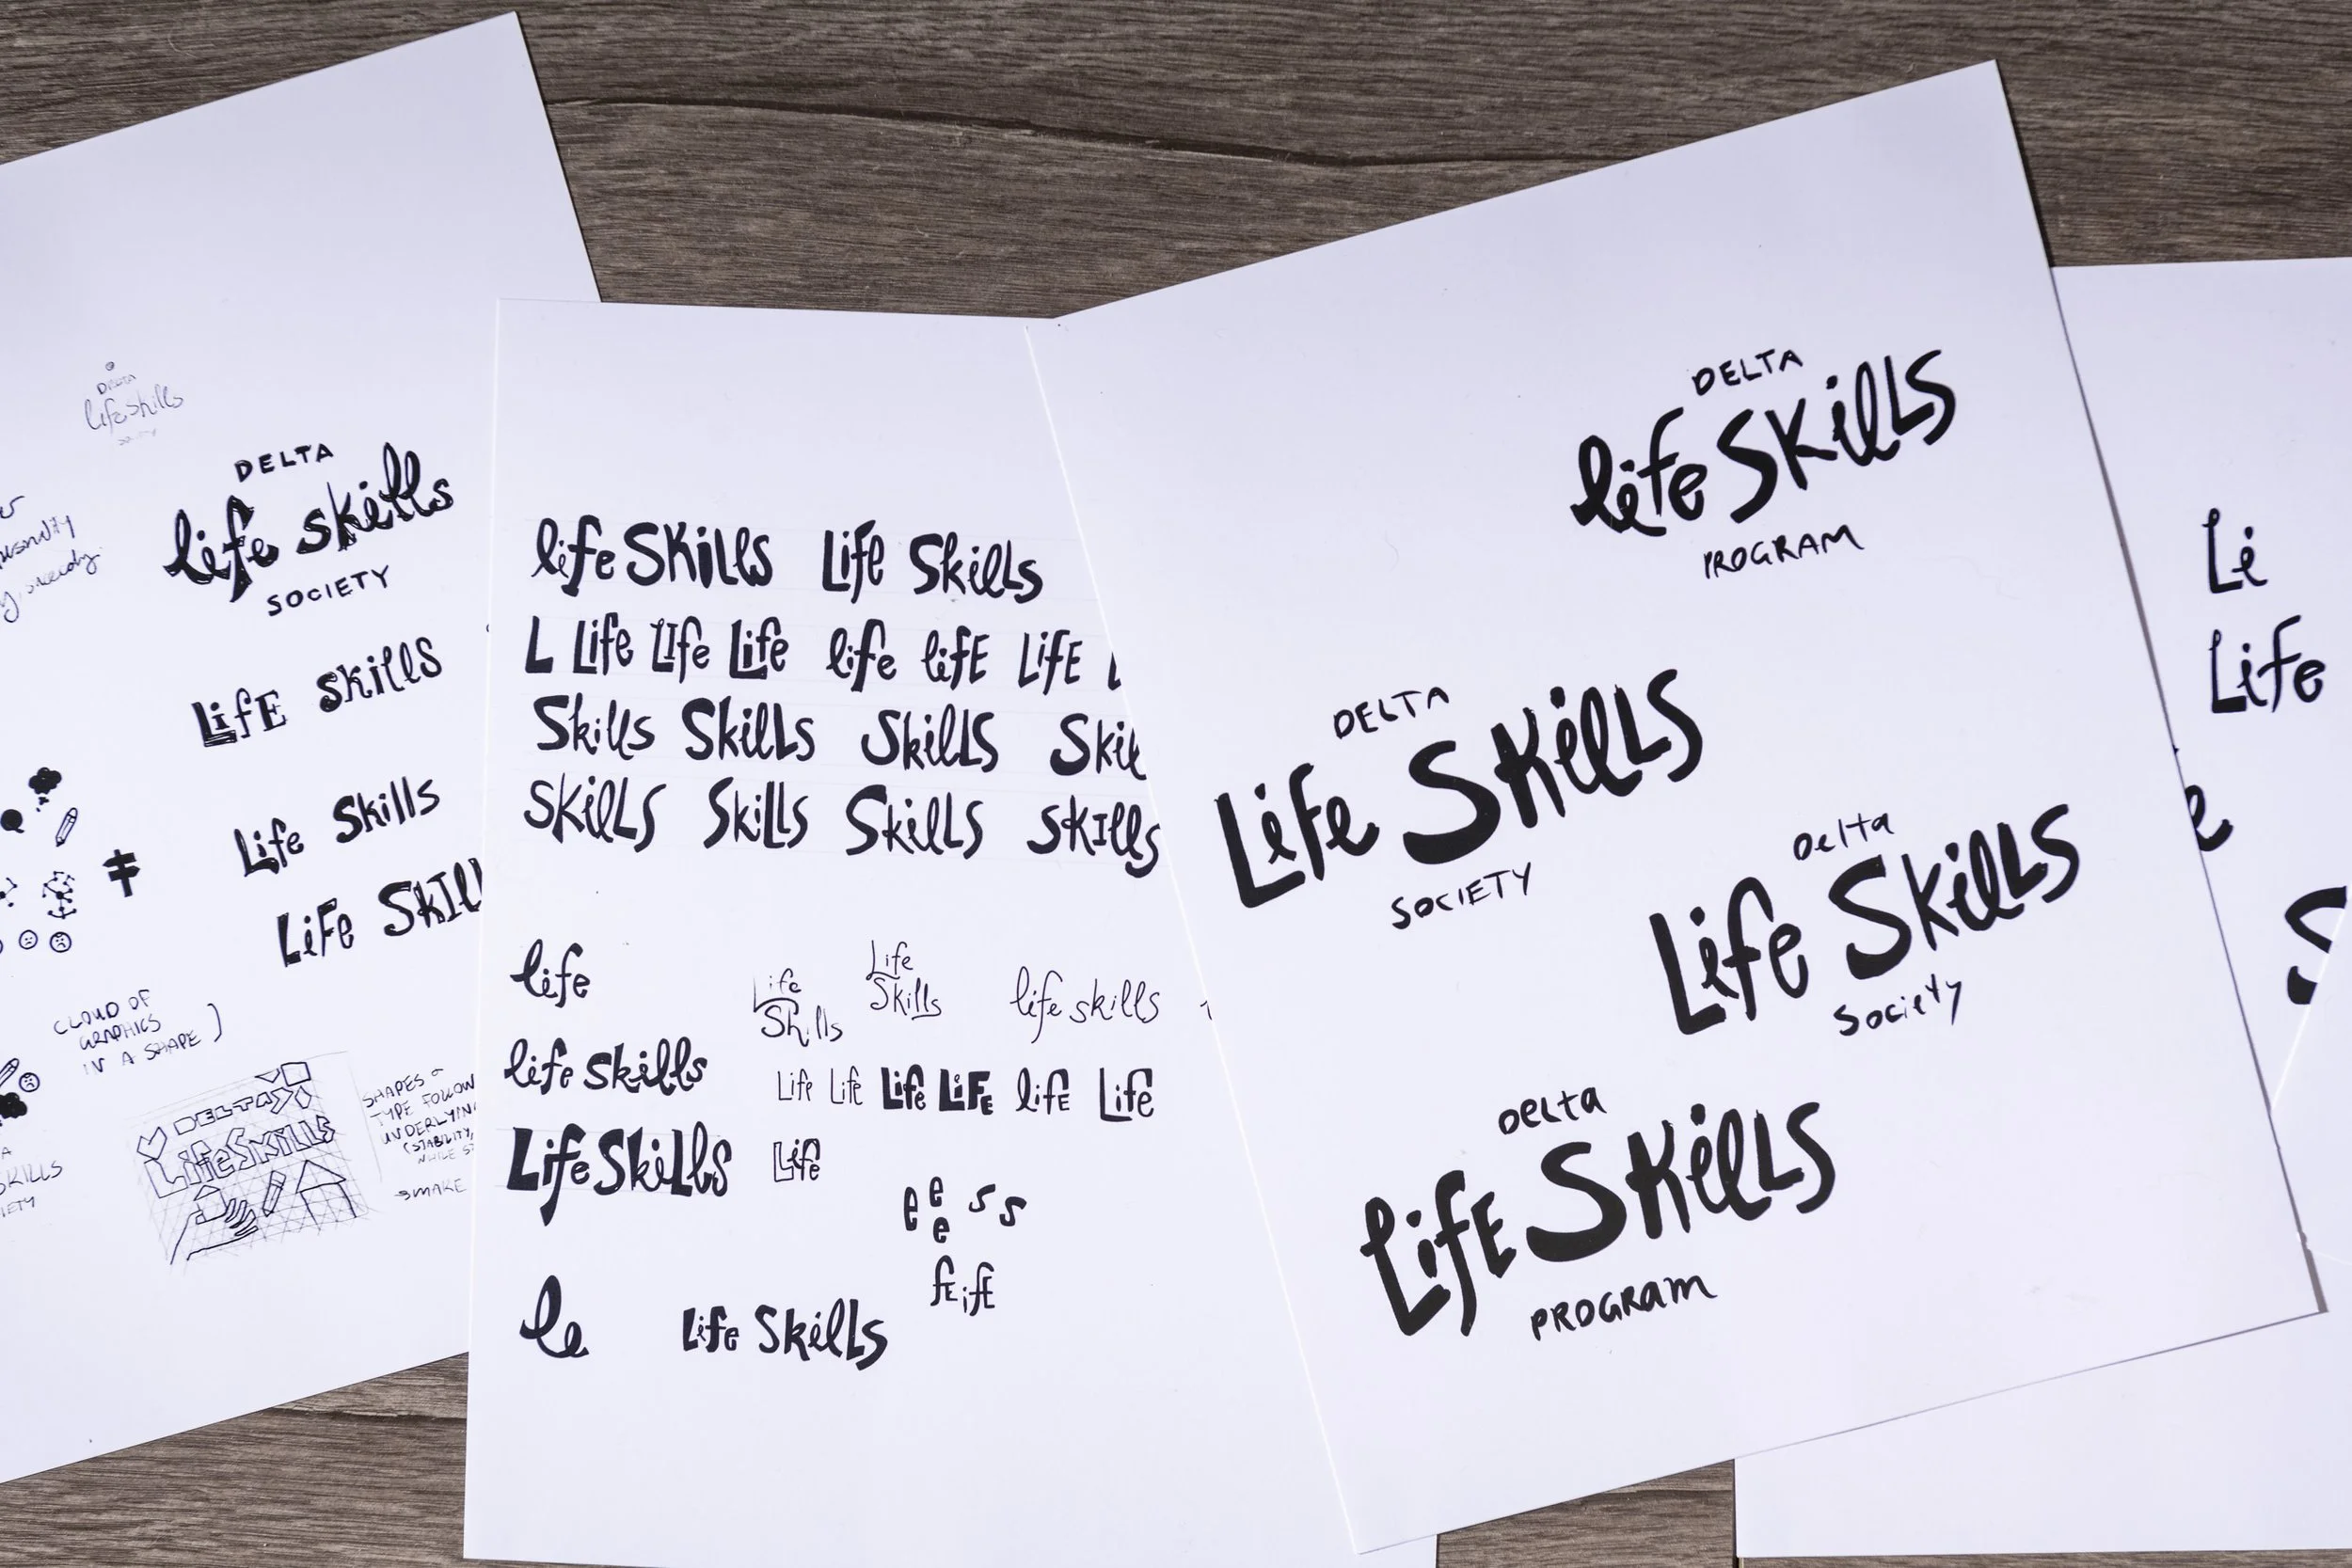 DELTA
life skills
DELTA
life skills
SOCIETY
LifE skills
Life Skills
LiFe SKIL
CLOUD OF
GRAPHICS
IN A SHAPE )
DELTA
LifeSKiLLS
SHAPES
TYPE FOLLOW
UNDERLYING
(STABILITY,
MAKE
SKILLS
life SKills Life Skills
L Life LIfe Life life lifE LifE
Skills SkillS SkillS Skil
SKillS Skills Skills SKIlls
life
Life
Skills
Life
Skills
life skills
life skills
Life Life Life LiFE lifE Life
Life Skills
Life
e e e s s
fE ifE
le
Life SkillS
DELTA
life SKillS
PROGRAM
DELTA
Life SKillS
SOCIETY
Delta
Life SkillS
Society
Delta
LifE SKillS
PROGRam
Li
Life
e
S